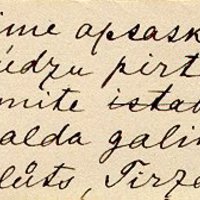 ime apsask
udzu pirt
mite istab
alda galin
lūts, Tirze